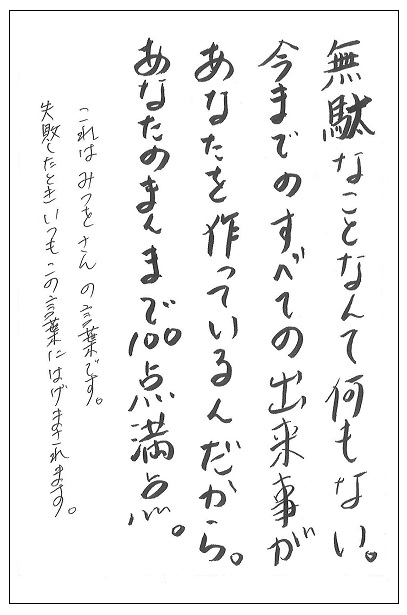 無駄なことなんて何もない。
今までのすべての出来事が
あなたを作っているんだから。
あなたのまんまで100点満点。
これはみつをさんの言葉です。
失敗したときいつもこの言葉にはげまされます。